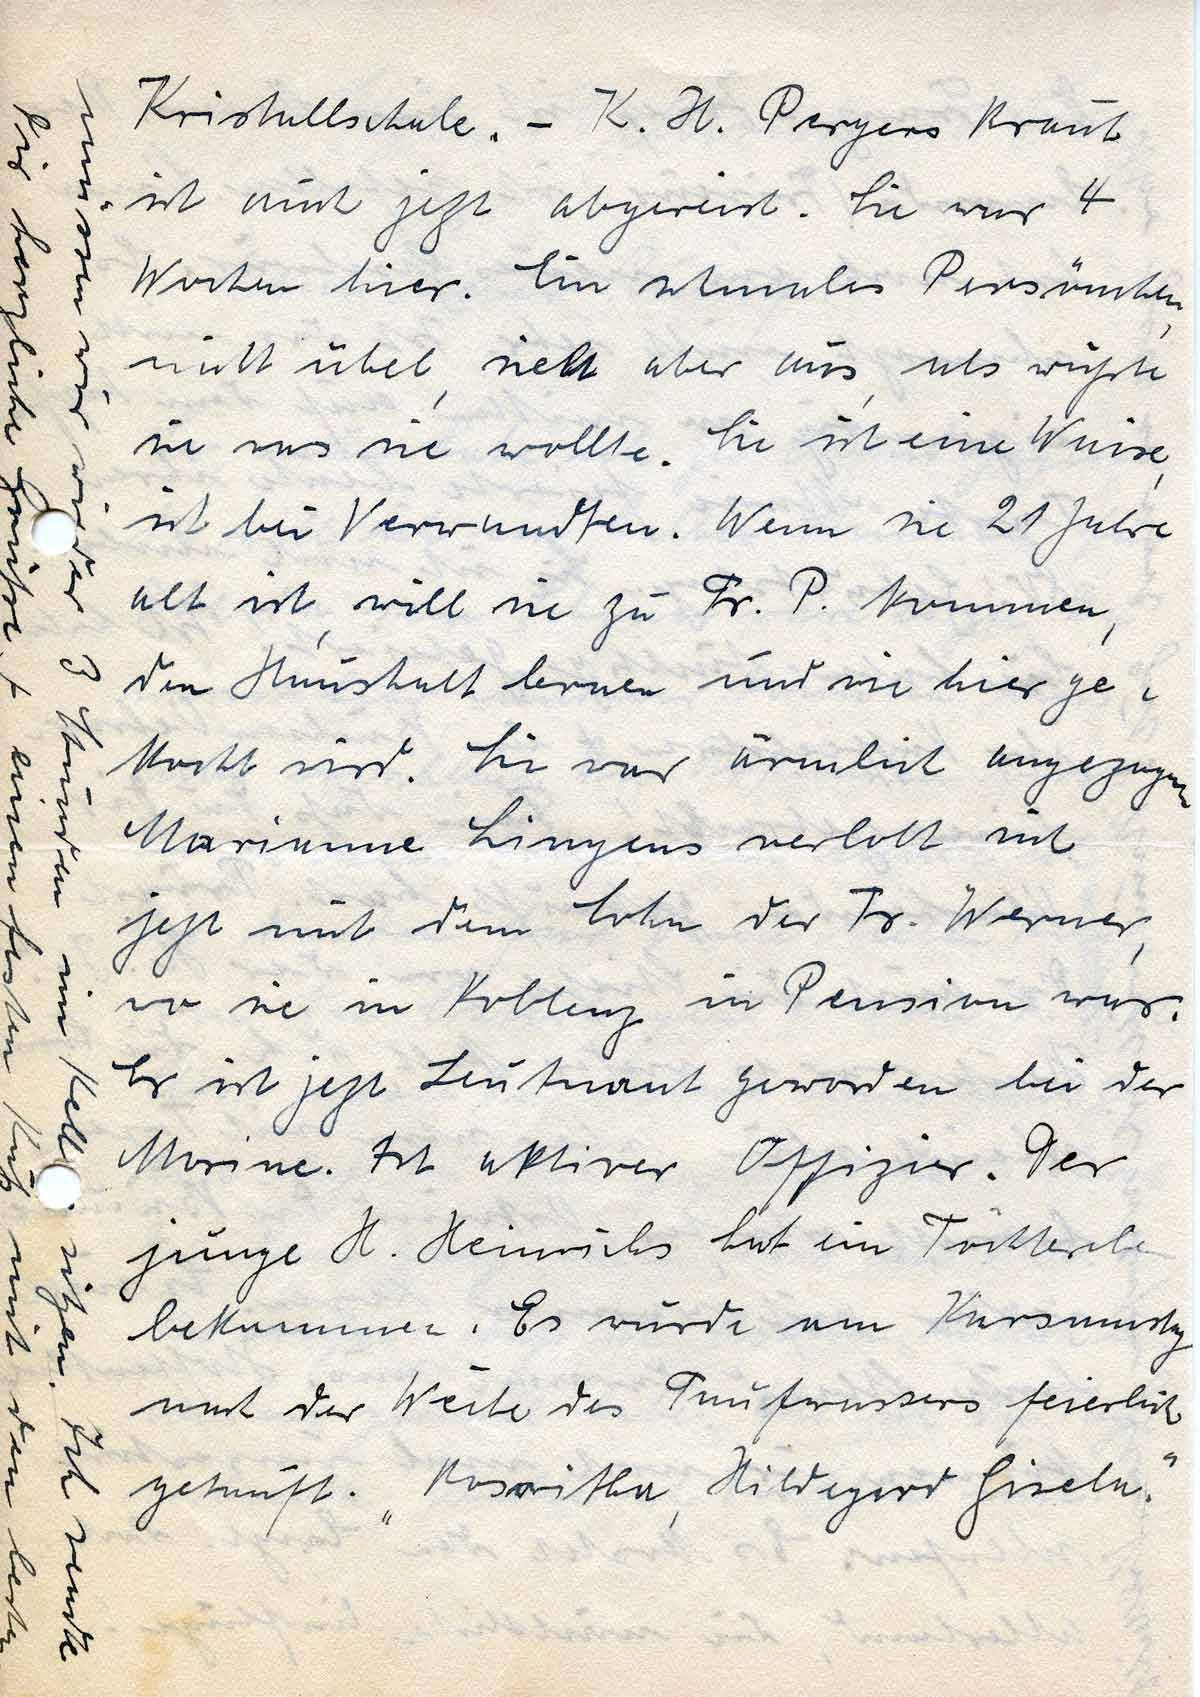 Kristallschale. – K. H. Pergers Braut
ist auch jetzt abgereist. Sie war 4
Wochen hier. Ein schmales Persönchen,
nicht übel, sieht aber aus, als wüßte
sie was sie wollte. Sie ist eine Waise,
ist bei Verwandten. Wenn sie 21 Jahre
alt ist, will sie zu Fr. P. kommen,
den Haushalt lernen und wie hier ge-
kocht wird. Sie war ärmlich angezogen
Marianne Lingens verlobt sich
jetzt mit dem Sohn der Fr. Werner,
wo sie in Koblenz in Pension war.
Er ist jetzt Leutnant geworden bei der
Marine. Ist aktiver Offizier. Der
junge H. Heinrichs hat ein Töchterche
bekommen. Es wurde am Karsamstag
nach der Weihe des Taufwassers feierlich
getauft. „Roswitha, Hildegard Gisela."
müssen wir wieder 3 Stunden im Keller sitzen. Ich sende
Dir herzliche Grüße + einen festen Kuß mit den besten